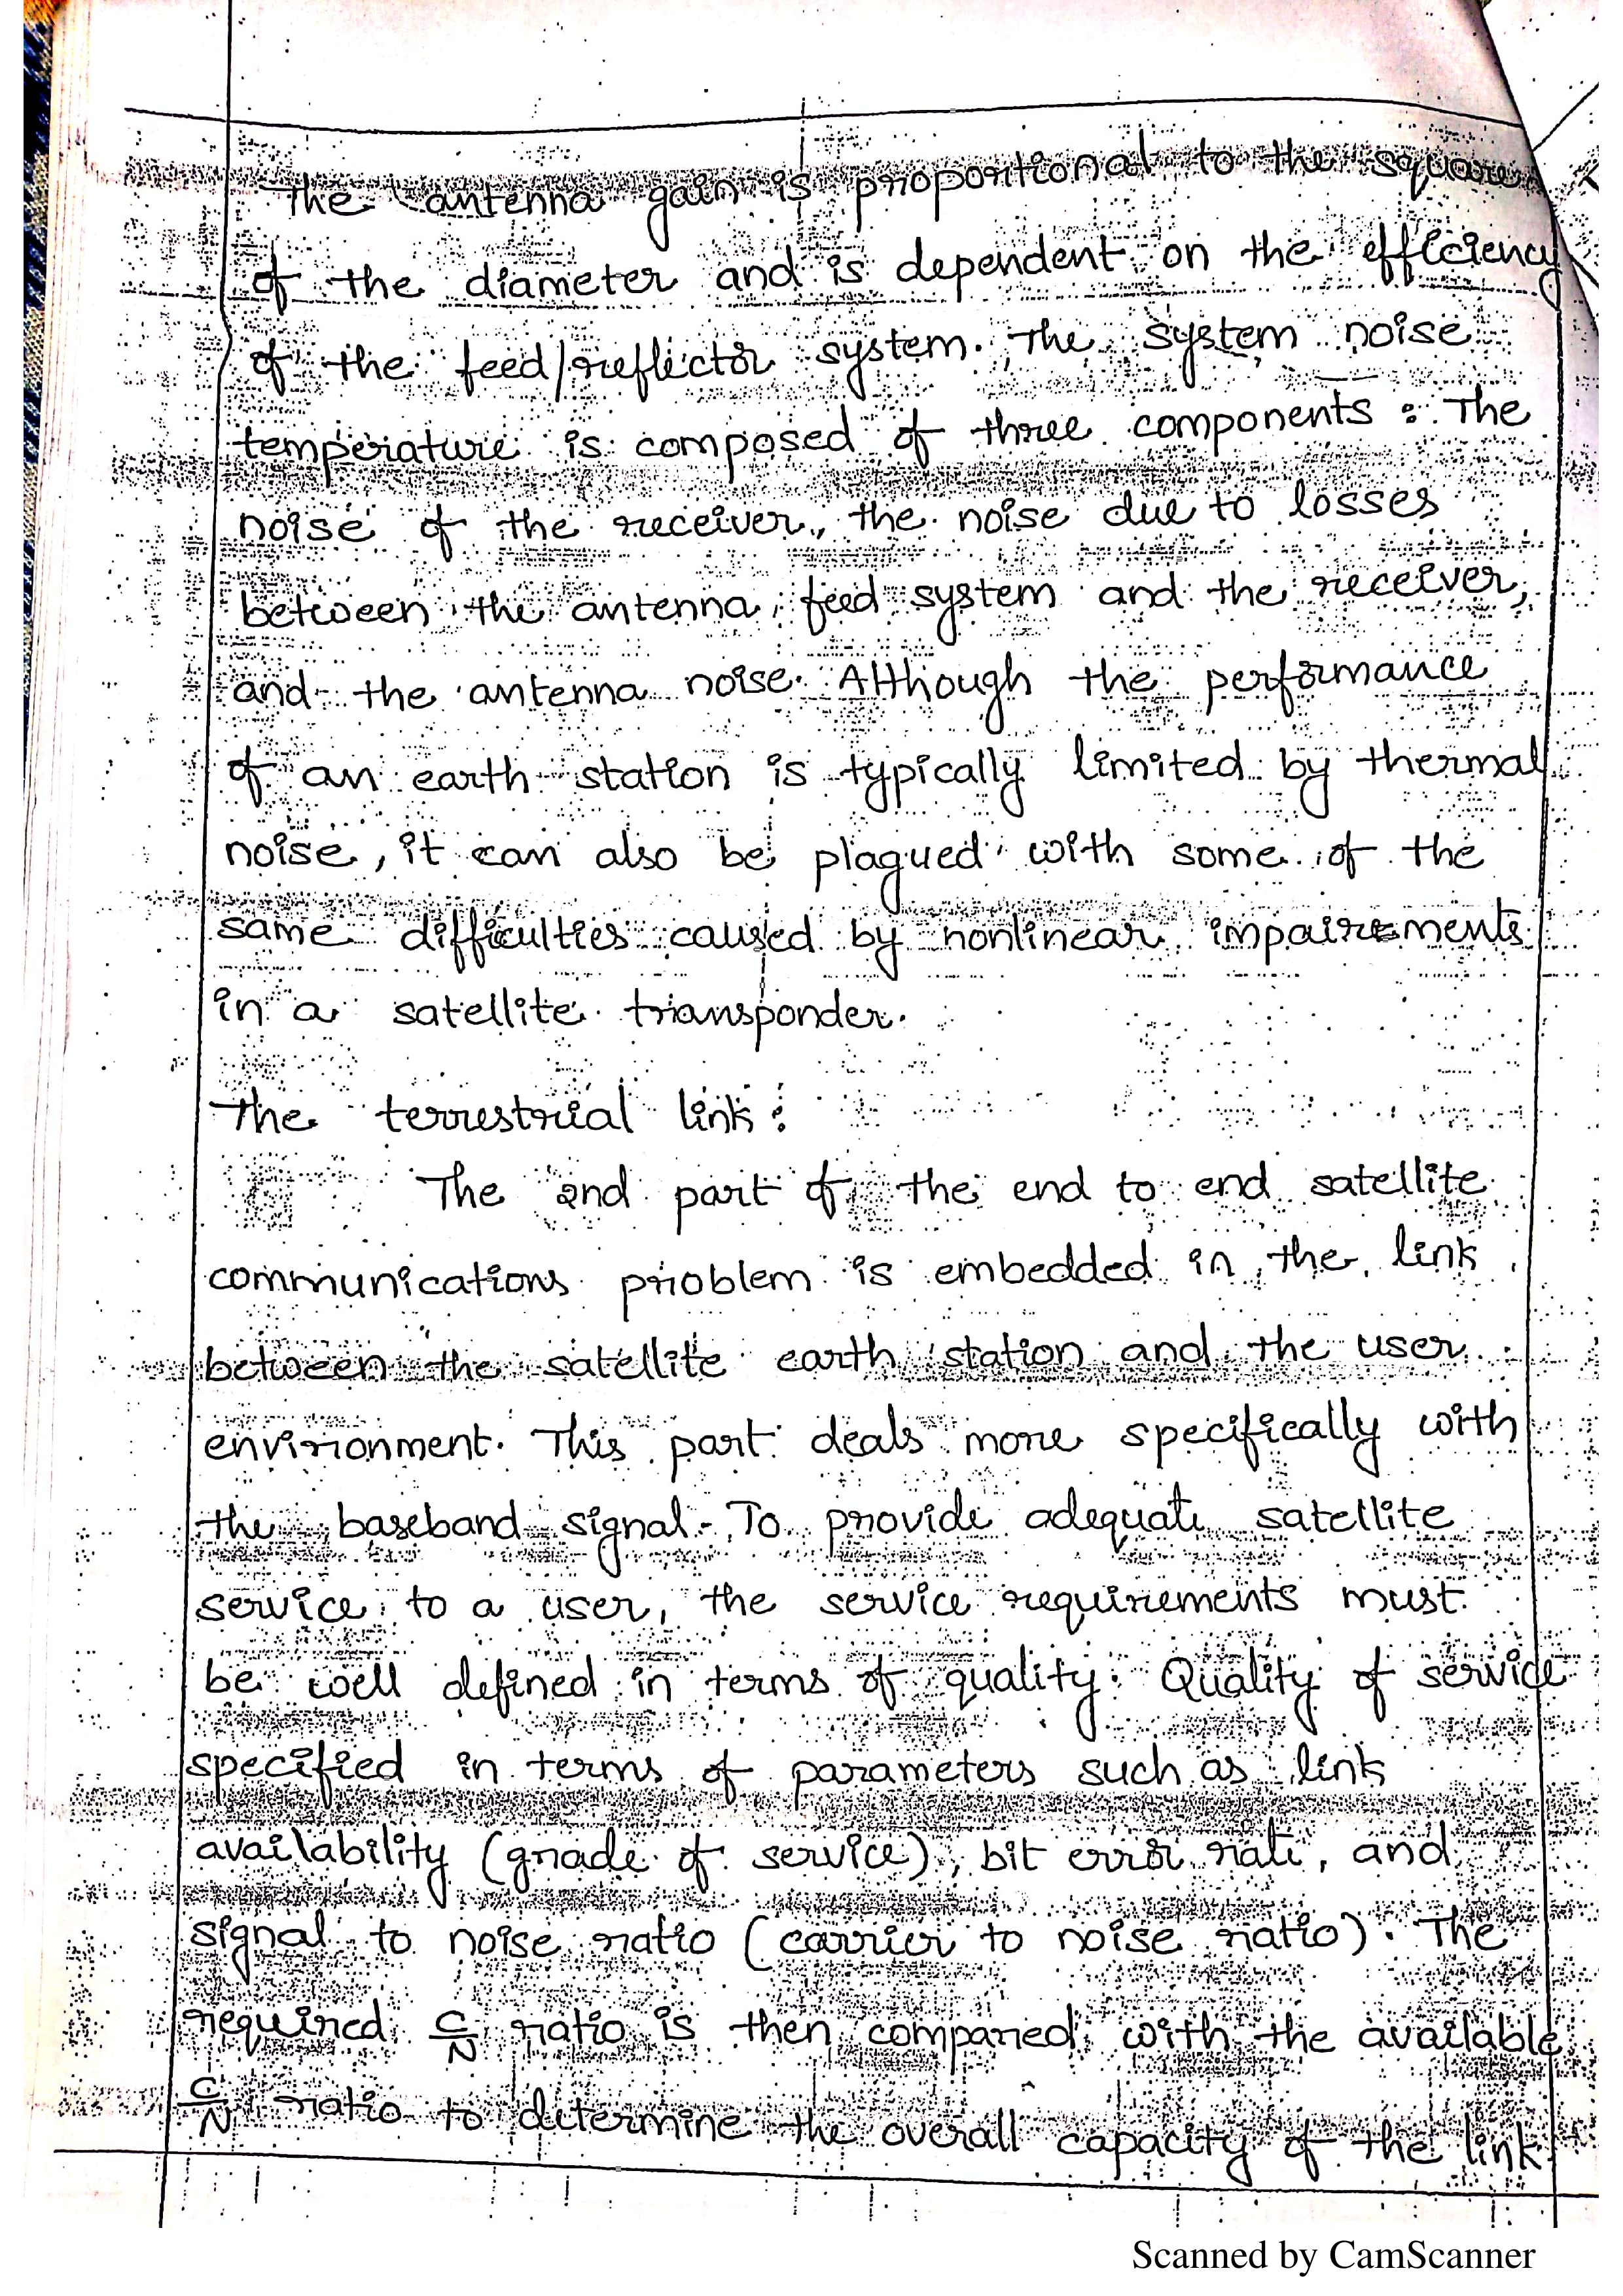 The antenna gain is proportional to the square
of the diameter and is dependent on the efficiency
of the feed/reflector system. The system noise
temperature is composed of three components : The
noise of the receiver, the noise due to losses
between the antenna feed system and the receiver,
and the antenna noise. Although the performance
of an earth station is typically limited by thermal
noise, it can also be plagued with some of the
same difficulties caused by nonlinear impairements
in a satellite transponder.
The terrestrial link :
The 2nd part of the end to end satellite
communications problem is embedded in the link
between the satellite earth station and the user
environment. This part deals more specifically with
the baseband signal. To provide adequate satellite
service to a user, the service requirements must
be well defined in terms of quality. Quality of service
specified in terms of parameters such as link
availability (grade of service), bit error rate, and
signal to noise ratio (carrier to noise ratio). The
required C/N ratio is then compared with the available
C/N ratio to determine the overall capacity of the link.
Scanned by CamScanner